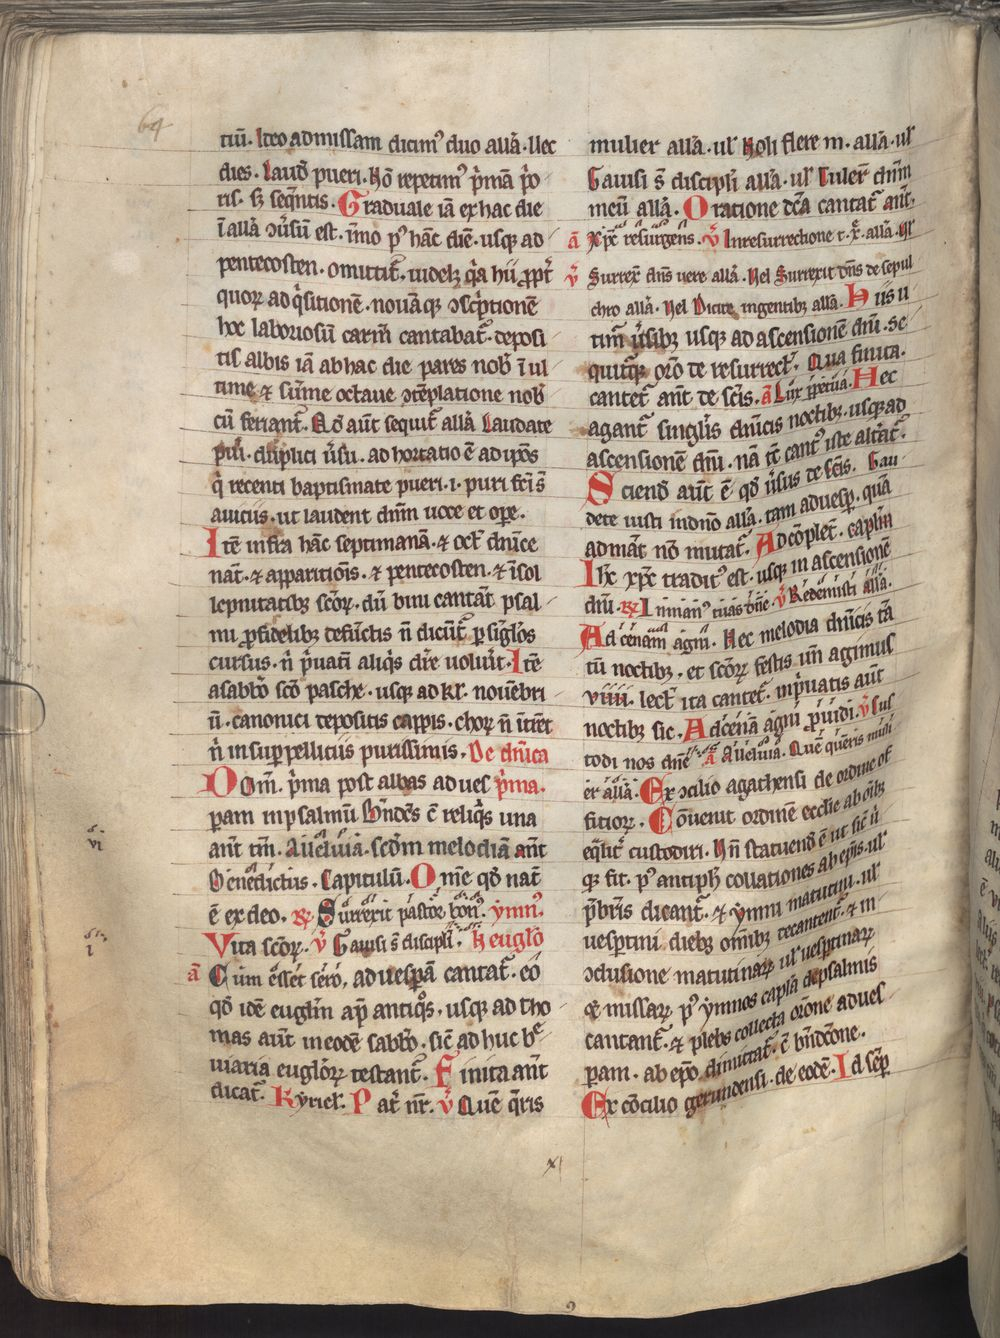 64
tiũ. Ideo ad missam dicimꝰ duo allã. Hec
dies. Laudˀ pueri. Hõ repetimꝰ p̃mã p̃o
ris. sꝫ seq̃ntis. Graduale iã ex hac die
ĩ allã ꝯũsũ est. ĩmo pꝰ hãc diẽ. usqꝫ ad
pentecosten. omittit̃. uidelꝫ q̃a
quoꝝ ad q̃sitionẽ. nouãqꝫ ꝯsc̃ptionẽ
hoc laboriosũ carm̃ cantabat̃. deposi
tis albis iã ab hac die pares nob̃ ĩ ul
time ⁊ sũme octaue ꝯtẽplatione nob̃
cũ feriant̃. Qđ aũt sequit̃ allã Laudate
pũi. duplici ũsu. adhortatio ẽ ad ip̃os
q̃ recenti baptismate pueri .i. puri fc̃i s̃
amicijs. ut laudent dñm uoce et oꝑe.
Itẽ infra hãc septimanã. ⁊ oct̃ dñice
nat̃. ⁊ apparitiõis. ⁊ pentecosten. ⁊ ĩ sol
lẽpnitatibꝫ sc̃oꝝ. dũ bini cantãt psal
mi ꝓ fidelibꝫ defũctis ñ dicũt̃ ꝑ sĩgl̃os
cursus. ñ p̃uati aliq̃s dr̃e uolũit. Itẽ
a sabbo sc̃o pasche. usqꝫ ad kł. nouẽbri
ũ. canonici depositis cappis. choꝝ ñ ĩtrẽt
ñ in suppelliciis purissimis. De dñica
Dom̃. p̃ma post albas ad ues p̃ma.
ꝑam in psalmũ Bñdcs̃ c̃ reliq̃s una
ant̃ tm̃. Aeuia. scd̃m melodiã ant̃
Benedictus. Capitulũ. Om̃e qđ nat̃
ẽ ex deo. ℟ Surrexit pastor bonꝰ. ymnꝰ.
Vita sc̃oꝝ. ℣ Gauisi s̃ discipl̃i. h̃ euglõ
ã Cum esset sero, ad uesꝑã cantat̃. eo
qđ idẽ euglm̃ ap̃ antiq̃os. usqꝫ ad tho
mas aũt in eodẽ sabbõ. sic̃ adhuc bͤ
uiaria euglõꝝ testant̃. Finita ant̃
dicat̃. Kyriel̃. Pat̃ nr̃. ℣ Quẽ q̃ris
mulier allã. ul̃ Noli flere m. allã. ul̃
Gauisi s̃ discipl̃i allã. ul̃ Tuler̃ dñm
meũ allã. Oratione dc̃a cantat̃ ant̃.
ã Xp̃c resurgens. ℣ In resurrectione t. x̃. allã. ul̃
℣ Surrex̃ dñs uere allã. Uel Surrexit dñs de sepul
chro allã. Uel Dicite in gentibꝫ allã. Hiis ii
tim̃ ũsibꝫ usqꝫ ad ascensionẽ dñi. Se
quit̃qꝫ or̃o de resurrect̃. Qua finita.
cantet̃ ant̃ de sc̃is. ã Lux ꝑpetua. Hec
agant̃ singul̃is dñicis noctibꝫ. usqꝫ ad
ascensionẽ dñi. nã tc̃ cant̃ꝰ iste alt̃at̃.
Sciend̃ aũt ẽ qđ ũsus de sc̃is. Gau
dete iusti in dño allã. tam ad uesꝑ. quã
ad mat̃ nõ mutat̃. Ad cõplet̃. capl̃m
Ih̃c xp̃c traditꝰ est. usqꝫ in ascensionẽ
dñi. ℟ In manꝰ tuas dñe. ℣ Redemisti allã.
Ad cenam agni. Hec melodia dñicis tã
tũ noctibꝫ. et sc̃oꝝ festis uñ agimus
viiii. lect̃ ita cantet̃. in p̃uatis aũt
noctibꝫ sic. Ad cenã agni ꝓuidi. ℣sus
todi nos dñe. ã Aeuia. Quẽ queris muli
er allã. Ex ꝯcilio agathensi de ordine of
ficioꝝ. Cõuenit ordinẽ ecclie ab oĩbꝫ
eq̃lit̃ custodiri. Uñ statuendũ ẽ ut sic̃ ũ
qꝫ fit. pꝰ antiph̃ collationes ab ep̃is. ul̃
p̃bris dicant̃. ⁊ ymni matutini. ul̃
uesptini diebꝫ om̃ibꝫ decantent̃. ⁊ in
ꝯclusione matutinaꝝ ul̃ uesꝑtinaꝝ
q̃ missaꝝ pꝰ ymnos capl̃a de psalmis
cantant̃. ⁊ plebs collecta orõne ad ues
ꝑam. ab ep̃o dimittat̃. c̃ bñdcõne.
Ex cõcilio gerundensi. de eodẽ. Id sẽꝑ
vi
i
xi